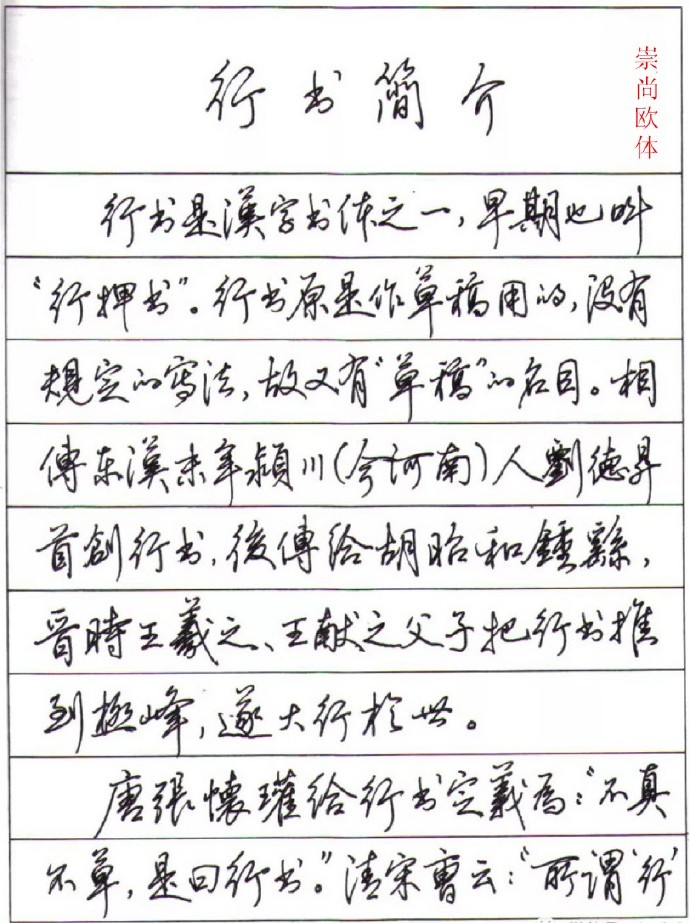 行书简介
崇尚欧体
行书是漢字书体之一，早期也叫
“行押书”。行书原是作草稿用的，没有
規定的寫法，故又有“草稿”的名目。相
傳东漢末年潁川（今河南）人劉德昇
首創行书，後傳给胡昭和鍾繇，
晋時王羲之、王献之父子把行书推
到極峰，遂大行於世。
唐張懷瓘给行书定義為：“不真
不草，是曰行书。”清宋曹云：“所谓‘行’